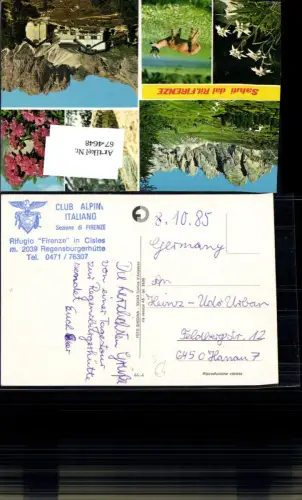 Saluti dal RIF.FIRENZE
Artikel Nr.
67-4648
CLUB ALPINO
ITALIANO
Sezione di FIRENZE
Rifugio "Firenze" in Cisles
m. 2039 Regensburgerhütte
Tel. 0471 / 76307
Die herzlichsten Grüße
von einer Tagestour
zur Regensburgerhütte
sendet Euch
8.10.85
Germany
An
Heinz-Udo Urban
Feldbergstr. 12
6450 Hanau 7
Riproduzione vietata